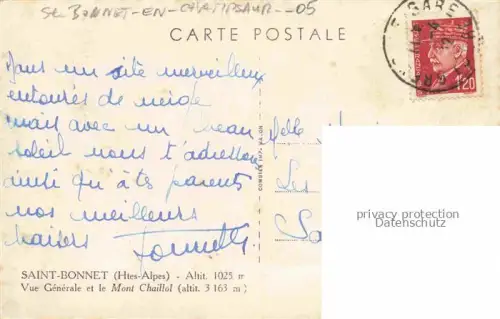 St BONNET-EN-CHAMPSAUR--05
CARTE POSTALE
GARE
1F20
Dans un site merveilleux
entourés de neige
mais avec un beau
soleil nous t'adressons
ainsi qu'à tes parents
nos meilleurs
baisers
Melle
Les
COMBIER IMP. MACON
privacy protection
Datenschutz
SAINT-BONNET (Htes-Alpes) - Altit. 1025 m
Vue Générale et le Mont Chaillol (altit. 3 163 m)